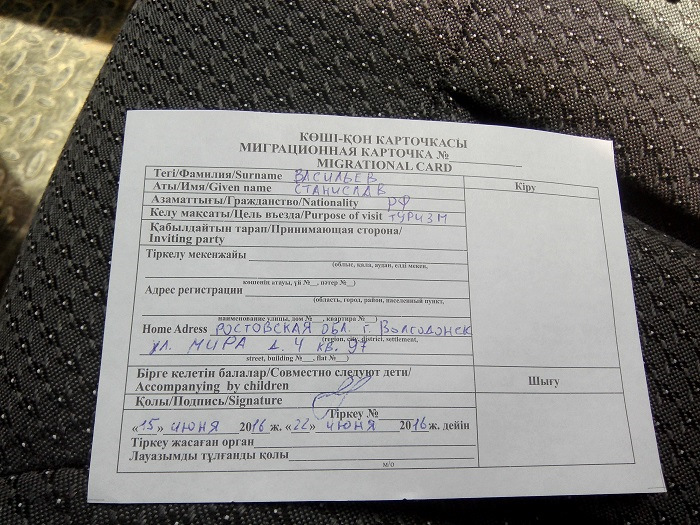 КӨШІ-ҚОН КАРТОЧКАСЫ
МИГРАЦИОННАЯ КАРТОЧКА №
MIGRATIONAL CARD
Тегі/Фамилия/Surname ВАСИЛЬЕВ
Кіру
Аты/Имя/Given name СТАНИСЛАВ
Азаматтығы/Гражданство/Nationality РФ
Келу мақсаты/Цель въезда/Purpose of visit ТУРИЗМ
Қабылдайтын тарап/Принимающая сторона/
Inviting party
Тіркелу мекенжайы
(облыс, қала, аудан, елді мекен,
көшенің атауы, үй №__, пәтер №__)
Адрес регистрации
(область, город, район, населенный пункт,
наименование улицы, дом №__, квартира №__)
Home Adress РОСТОВСКАЯ ОБЛ. г. Волгодонск
(region, city, district, settlement,
ул. МИРА д. 4 кв. 97
street, building №__, flat №__)
Бірге келетін балалар/Совместно следуют дети/
Accompanying by children
Шығу
Қолы/Подпись/Signature
Тіркеу №
«15» июня 2016ж. «22» июня 2016ж. дейін
Тіркеу жасаған орган
Лауазымды тұлғанды қолы
м/о